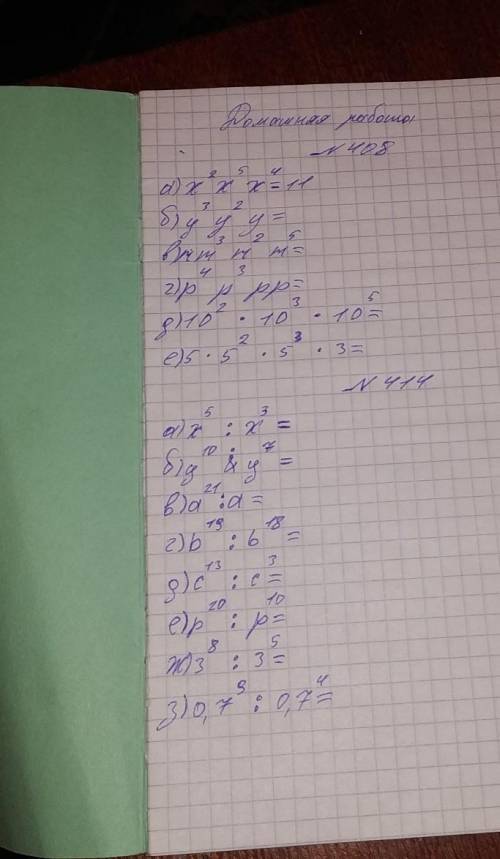 Домашняя работа
№ 408
а) x² x⁵ x⁴ = 11
б) y³ y² y =
в) m m³ m² m⁵ =
г) p⁴ p³ pp =
д) 10² · 10³ · 10⁵ =
е) 5 · 5² · 5³ · 3 =
№ 414
а) x⁵ : x³ =
б) y¹⁰ : y⁷ =
в) a²¹ : a =
г) b¹⁹ : b¹⁸ =
д) c¹³ : c³ =
е) p²⁰ : p¹⁰ =
ж) 3⁸ : 3⁵ =
з) 0,7⁹ : 0,7⁴ =